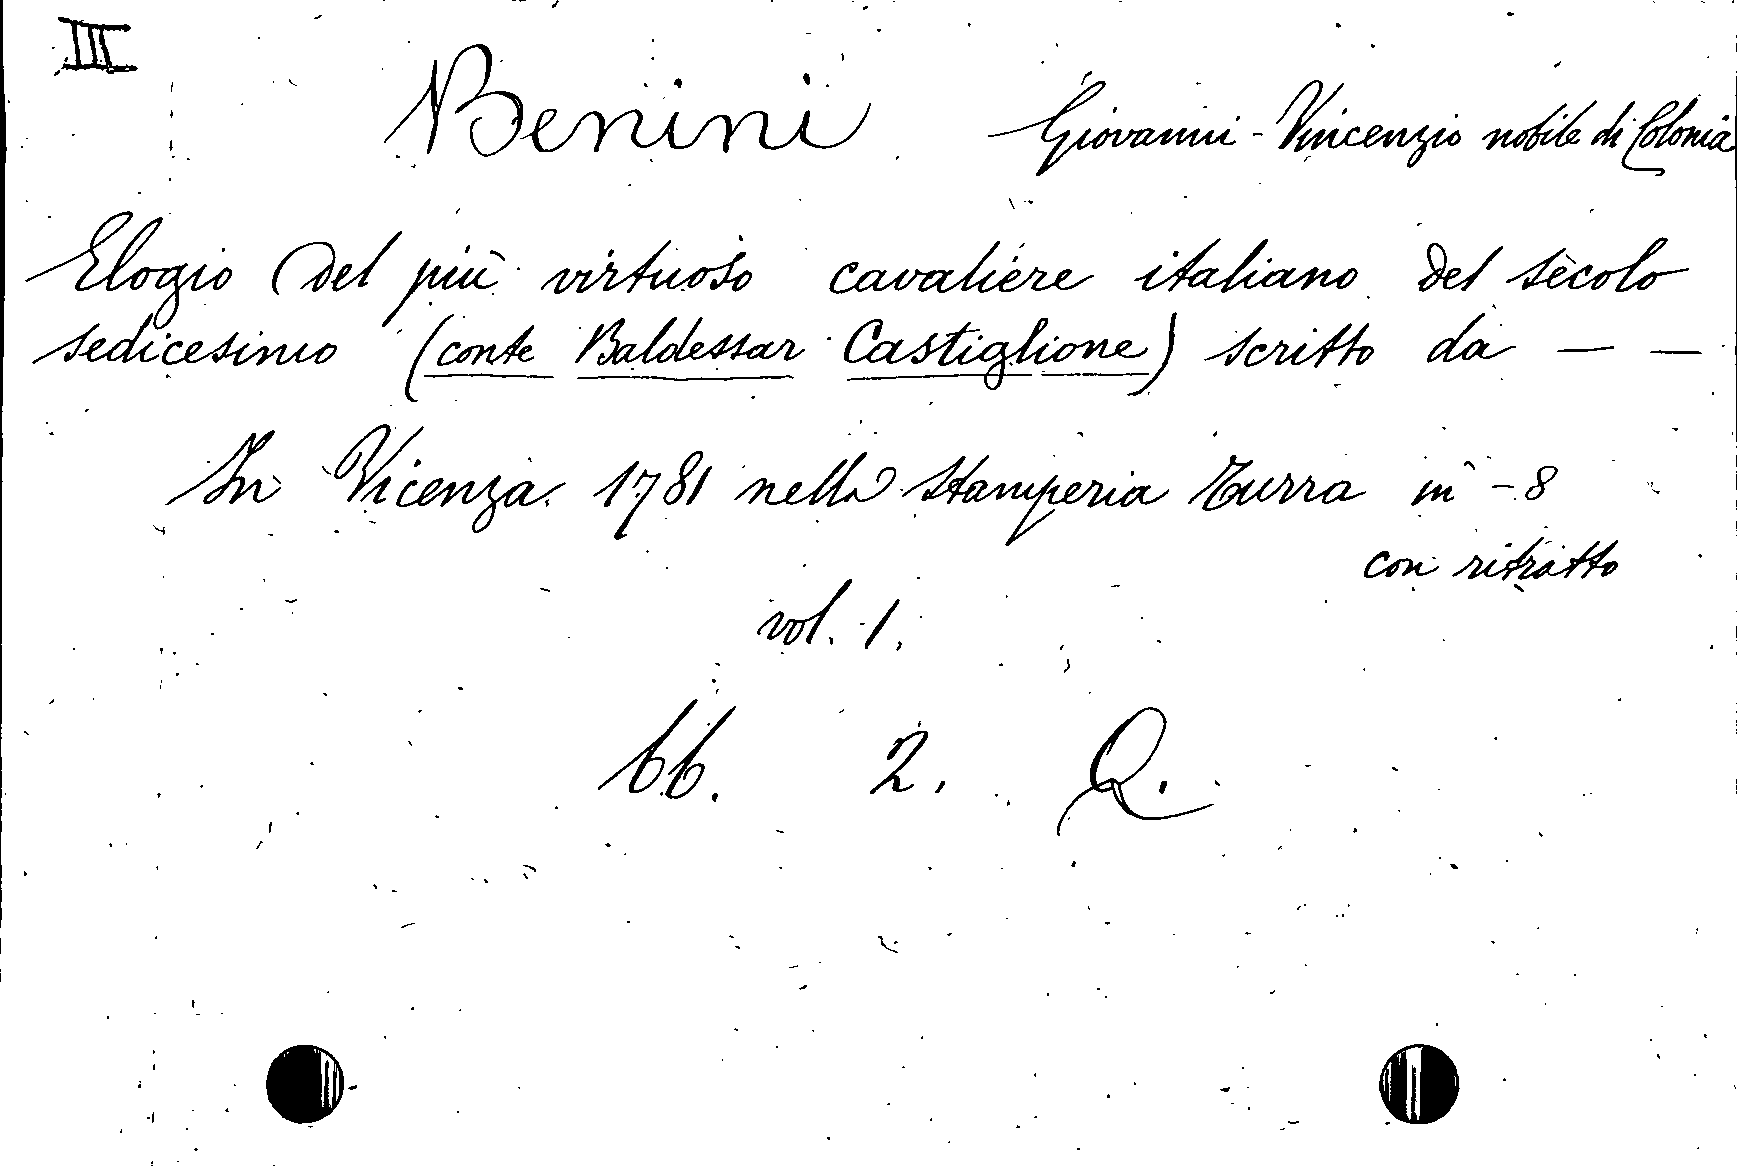 III
Benini Giovanni-Vincenzio nobile di Colonia
Elogio del più virtuoso cavaliére italiano del sècolo
sedicesimo (conte Baldessar Castiglione) scritto da — —
In Vicenza. 1781 nella stamperia Turra in-8
con ritratto
vol. 1.
bb. 2. Q.